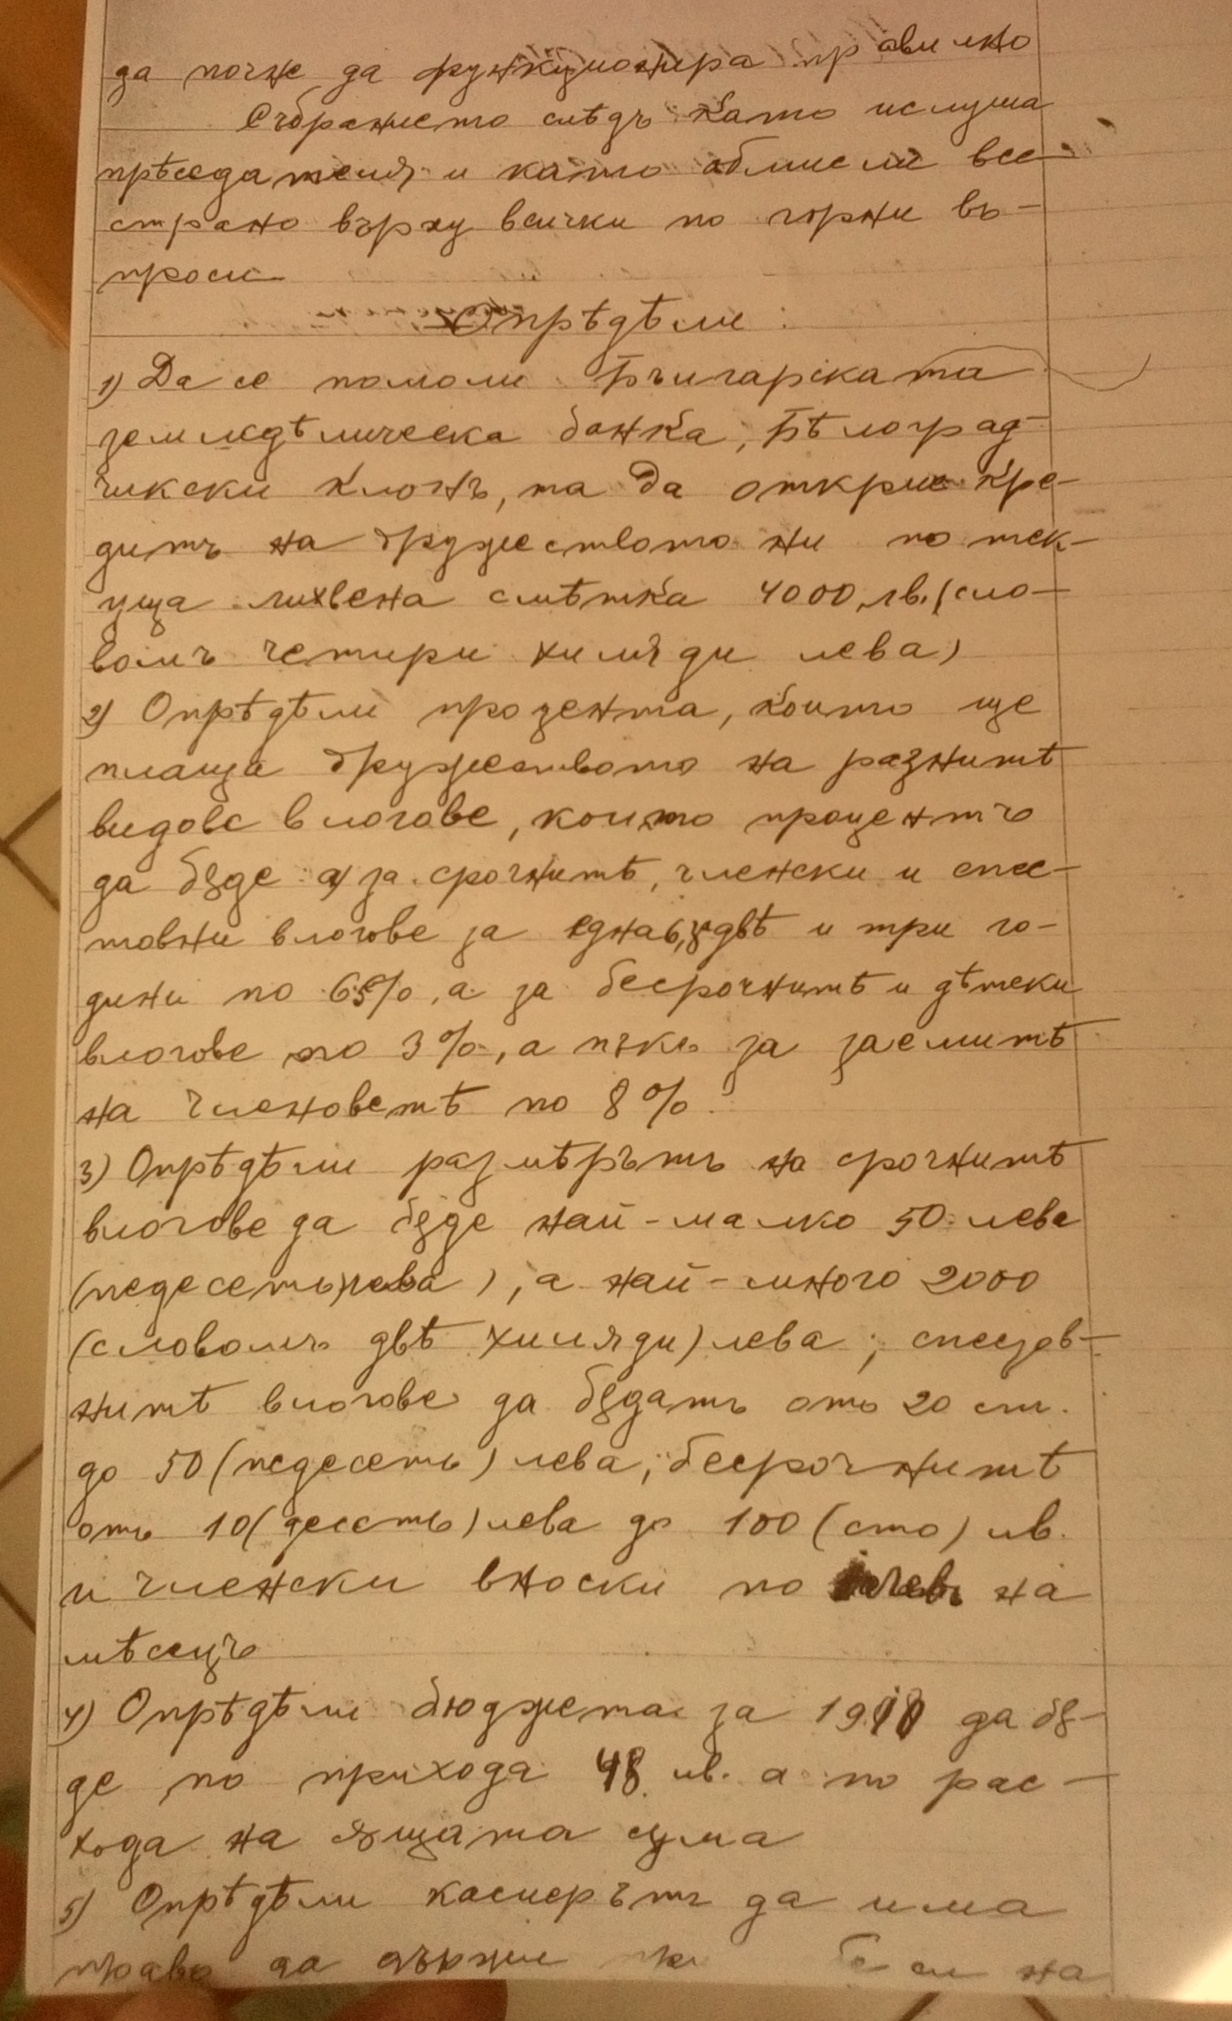 да почне да функционира правилно
Събранието слѣдъ като ислуша
прѣседателя и като обмисли все
страно върху всички по горни въ-
проси
Опрѣдѣли:
1) Да се помоли Българската
земледѣлческа банка, Бѣлоград
чикски клонъ, та да открие кре-
дитъ на дружеството ни по тек-
уща лихвена смѣтка 4000 лв. (сло-
вомъ четири хиляди лева)
2) Опрѣдѣли процента, който ще
плаща дружеството на разнитѣ
видове влогове, който процентъ
да бѫде а) за срочнитѣ, членски и спес-
товни влогове за една, двѣ и три го-
дини по %, а за бесрочнитѣ и дѣтски
влогове по 3%, а пъкъ за заемитѣ
на членоветѣ по 8%.
3) Опрѣдѣли размѣрътъ на срочнитѣ
влогове да бѫде най-малко 50 лева
(педесеть лева), а най-много 2000
(словомъ двѣ хиляди) лева; спестов-
нитѣ влогове да бѫдатъ отъ 20 ст.
до 50 (педесеть) лева; бесрочнитѣ
отъ 10 (десеть) лева до 100 (сто) лв.
и членски вноски по левъ на
мѣсецъ
4) Опрѣдѣли бюджета за 1910 да бѫ-
де по прихода 48 лв. а по рас-
хода на сѫщата сума
5) Опрѣдѣли касиерътъ да има
право да държи си на